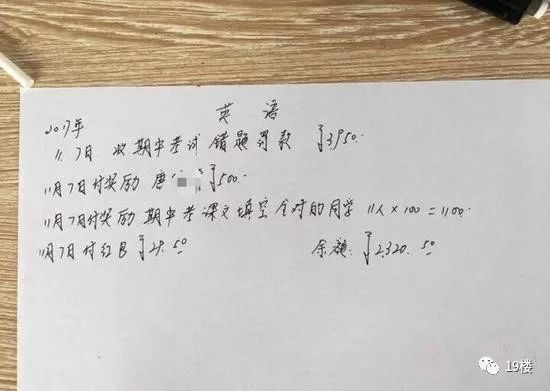 英语
2017年
11.7日 收期中考试错题罚款 ¥3950.
11月7日付奖励 唐 ¥500.
11月7日付奖励 期中考课文填空全对的同学 11人×100=1100.
11月7日付红包 ¥29.50 余额: ¥2320.50
19楼